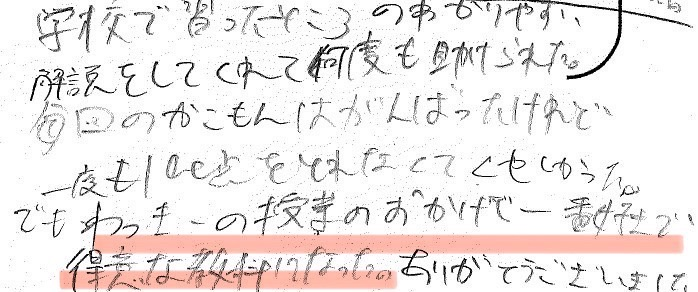 学校で習ったところのわかりやすい
解説をしてくれて何度も助けられた。
毎回のかこもんはがんばったけれど、
一度も100点をとれなくてくやしかった。
でもわっきーの授業のおかげで一番好きで
得意な教科になった。ありがとうございました